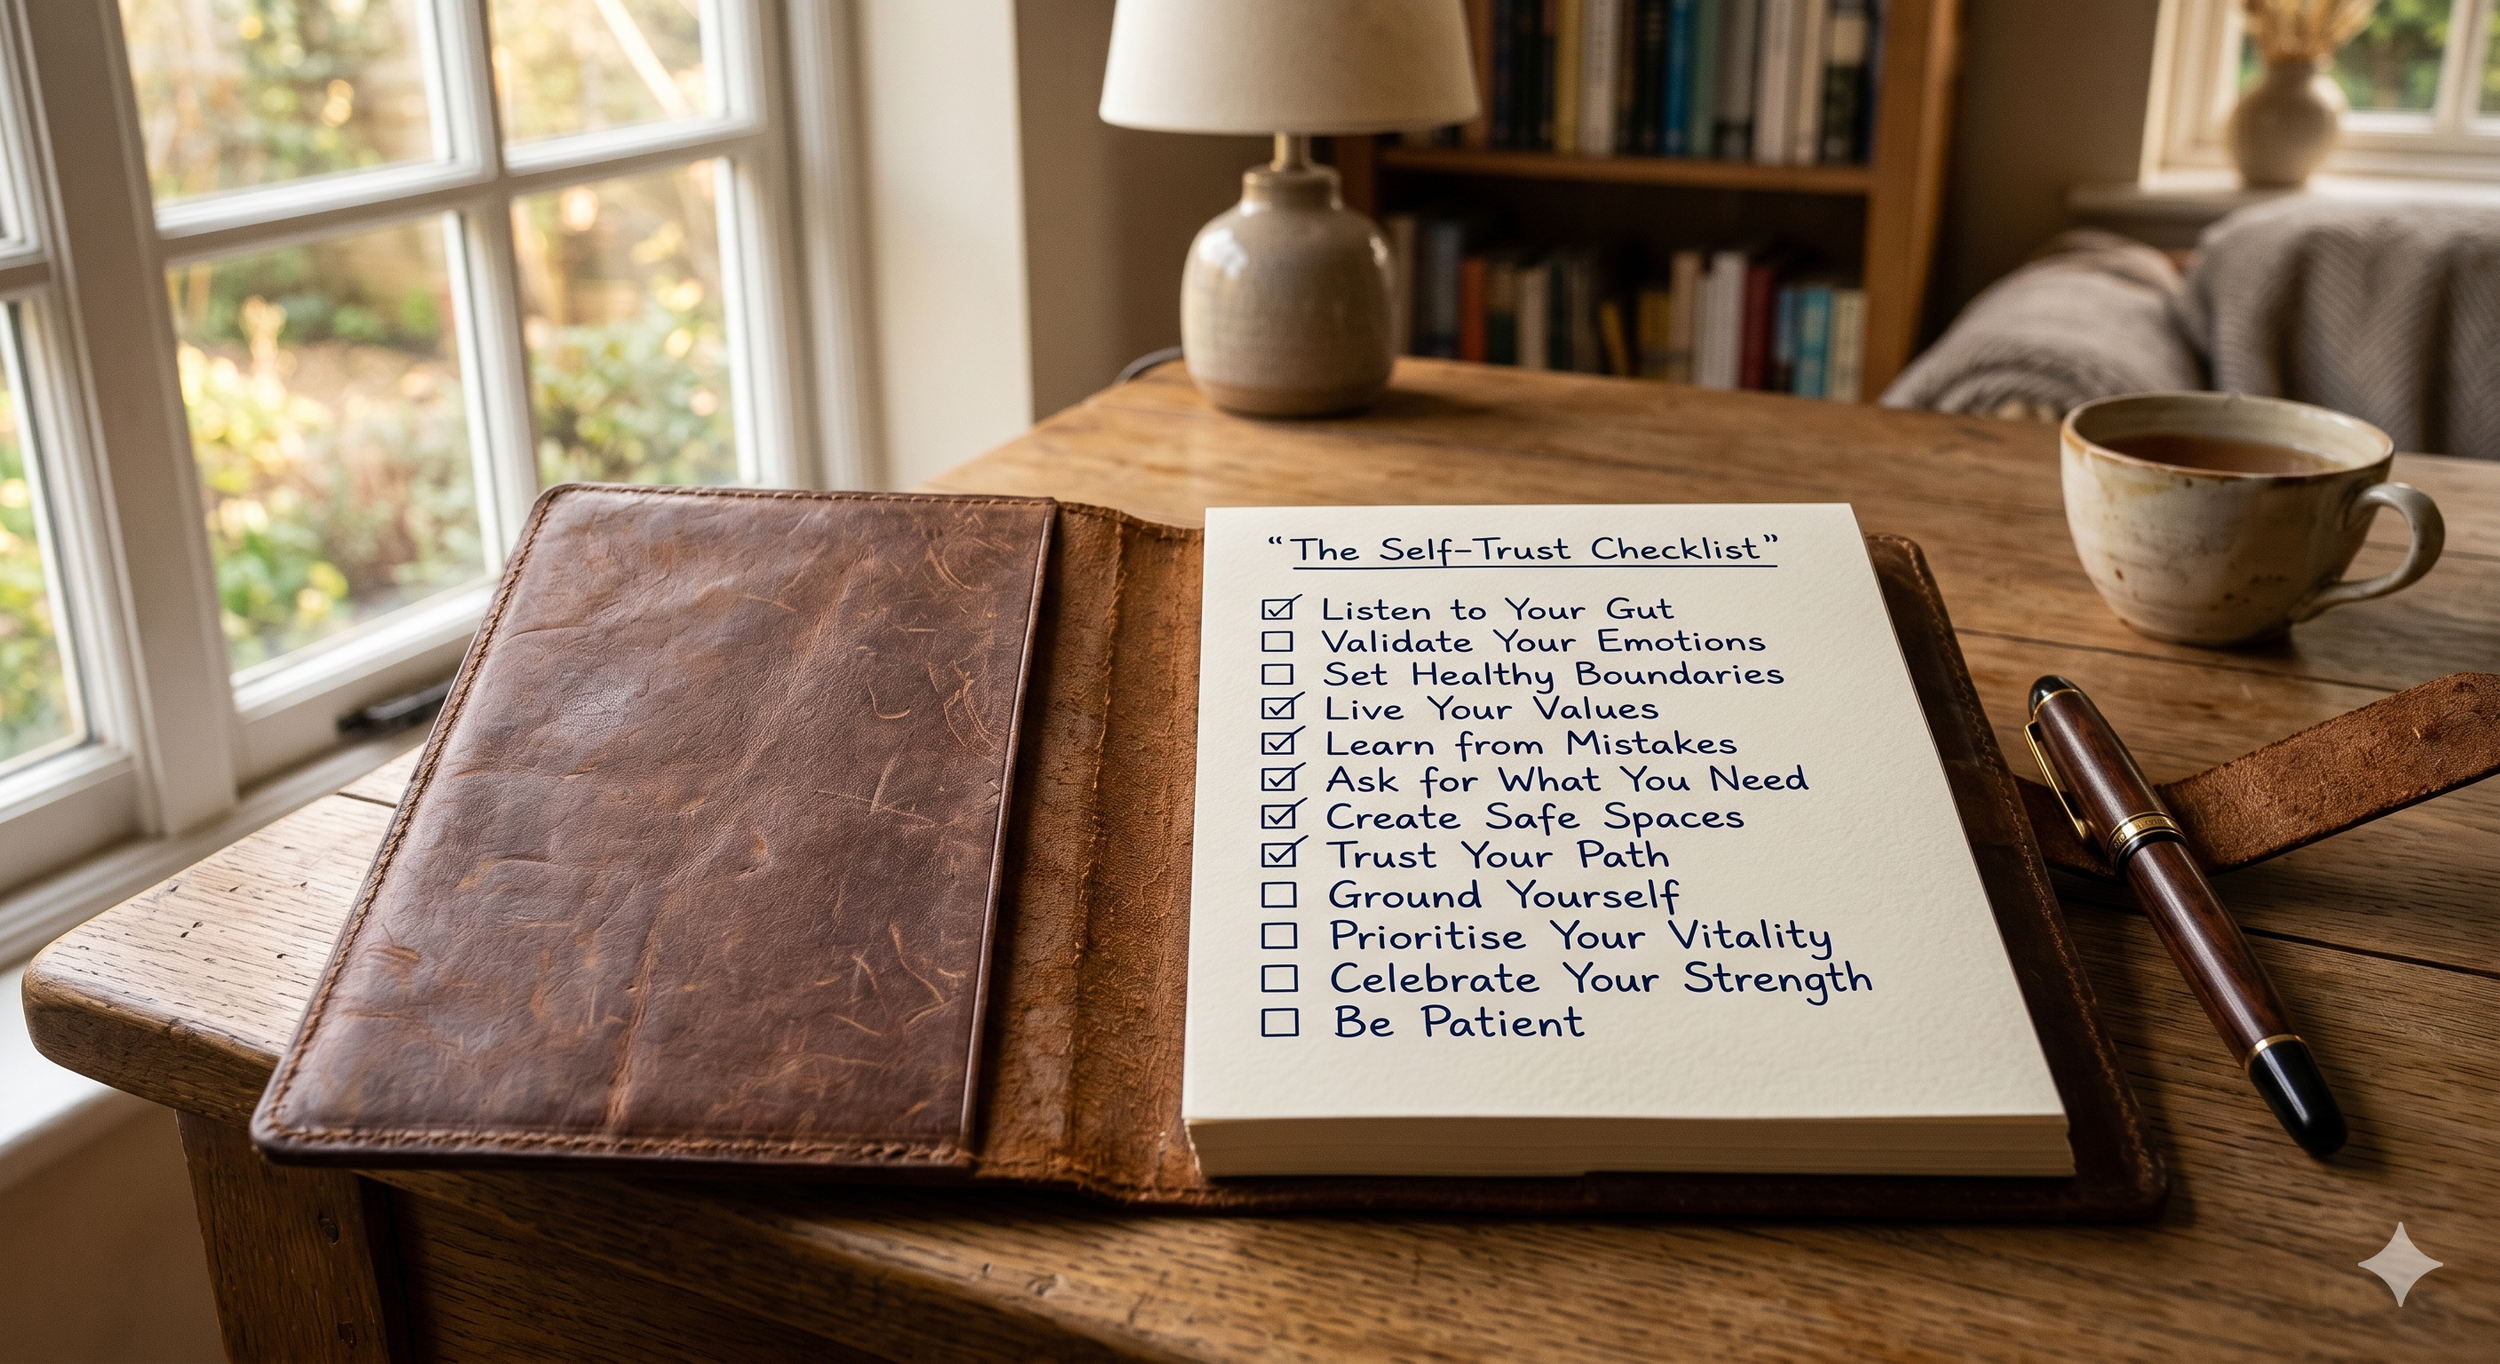 “The Self-Trust Checklist”
☑ Listen to Your Gut
☐ Validate Your Emotions
☐ Set Healthy Boundaries
☑ Live Your Values
☑ Learn from Mistakes
☑ Ask for What You Need
☑ Create Safe Spaces
☑ Trust Your Path
☐ Ground Yourself
☐ Prioritise Your Vitality
☐ Celebrate Your Strength
☐ Be Patient